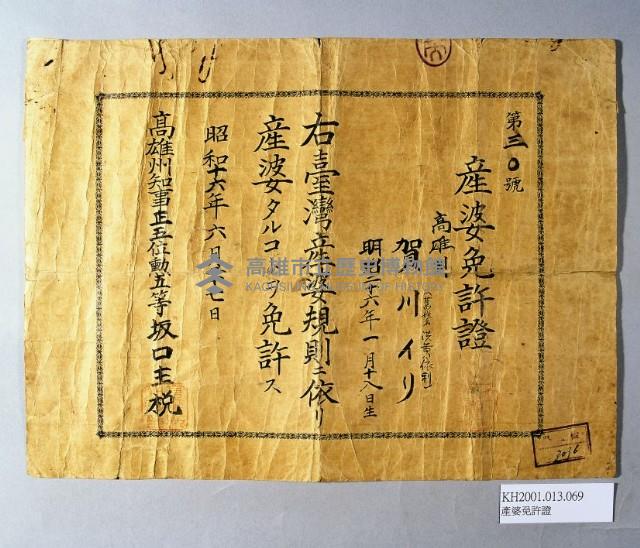 第三〇號
産婆免許證
高雄州
賀川イリ
明治三十六年一月十八日生
右臺灣産婆規則ニ依リ
産婆タルコトヲ免許ス
昭和十六年六月十七日
高雄州知事正五位勲五等坂口主税
高雄市立歷史博物館
KAOHSIUNG MUSEUM OF HISTORY
KH2001.013.069
産婆免許證